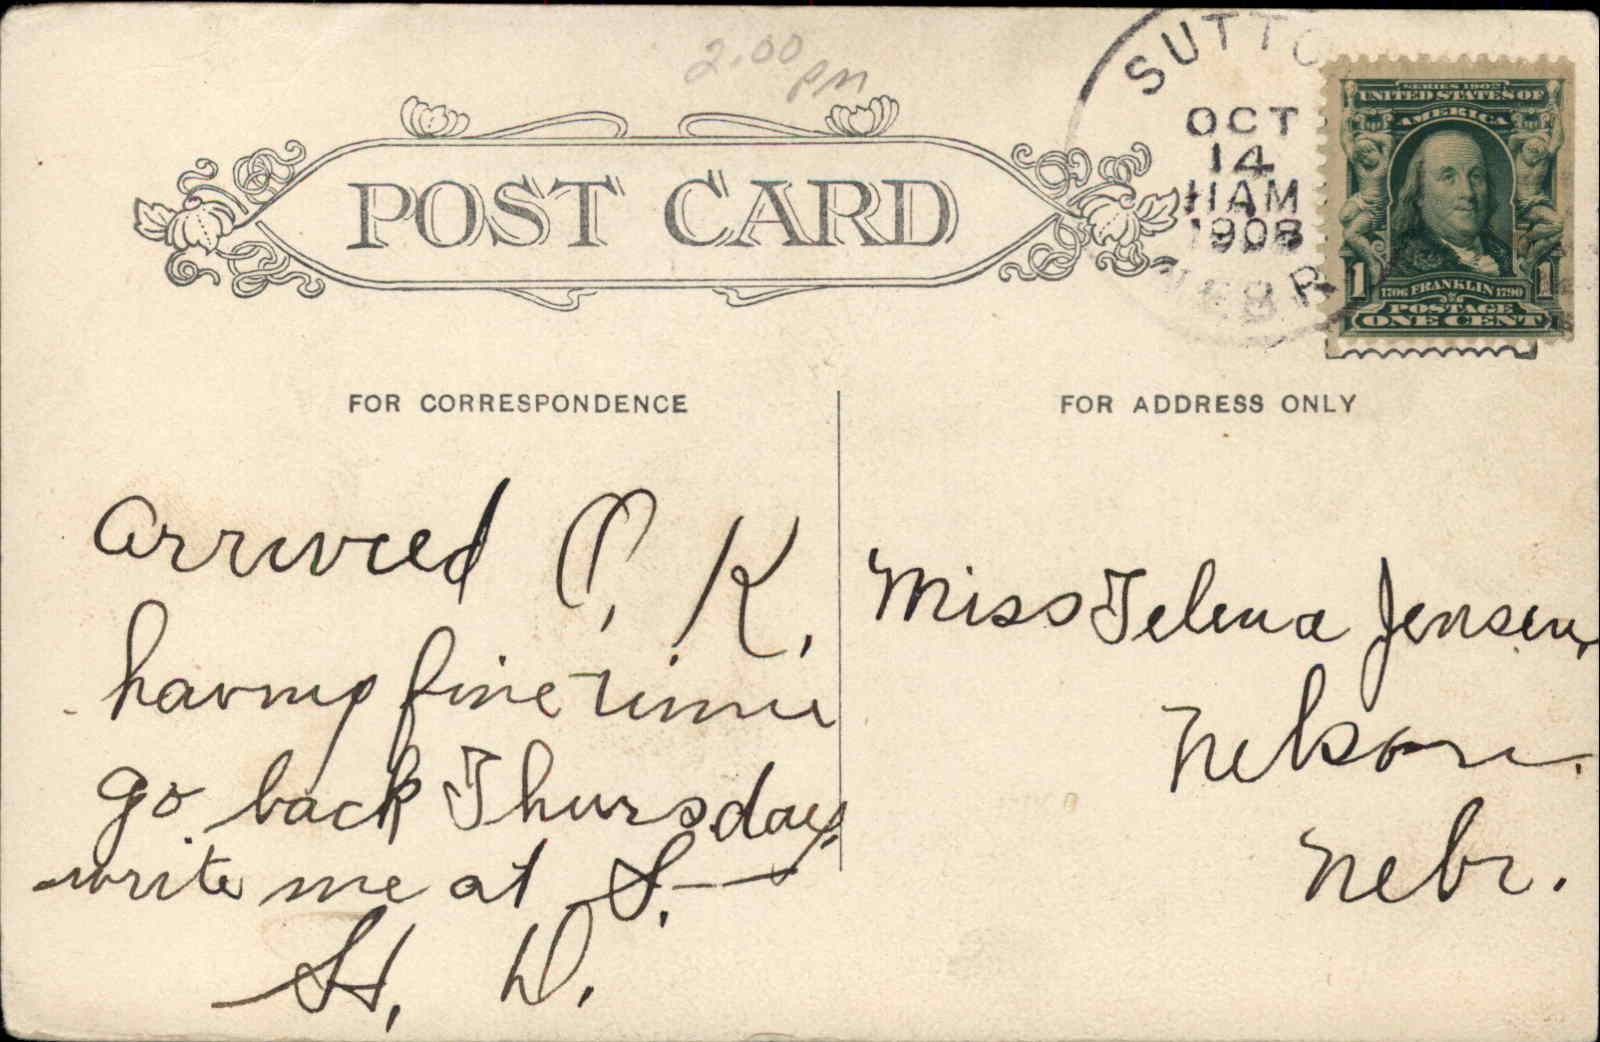 2.00 pm
SUTTO
OCT
14
11AM
1908
NEBR
SERIES 1902
UNITED STATES OF
AMERICA
1 1706 FRANKLIN 1790 1
POSTAGE
ONE CENT
POST CARD
FOR CORRESPONDENCE
arrived O, K,
having fine time
go back Thursday
write me at S.
H, D.
FOR ADDRESS ONLY
Miss Telena Jensen,
Nelson.
Nebr.